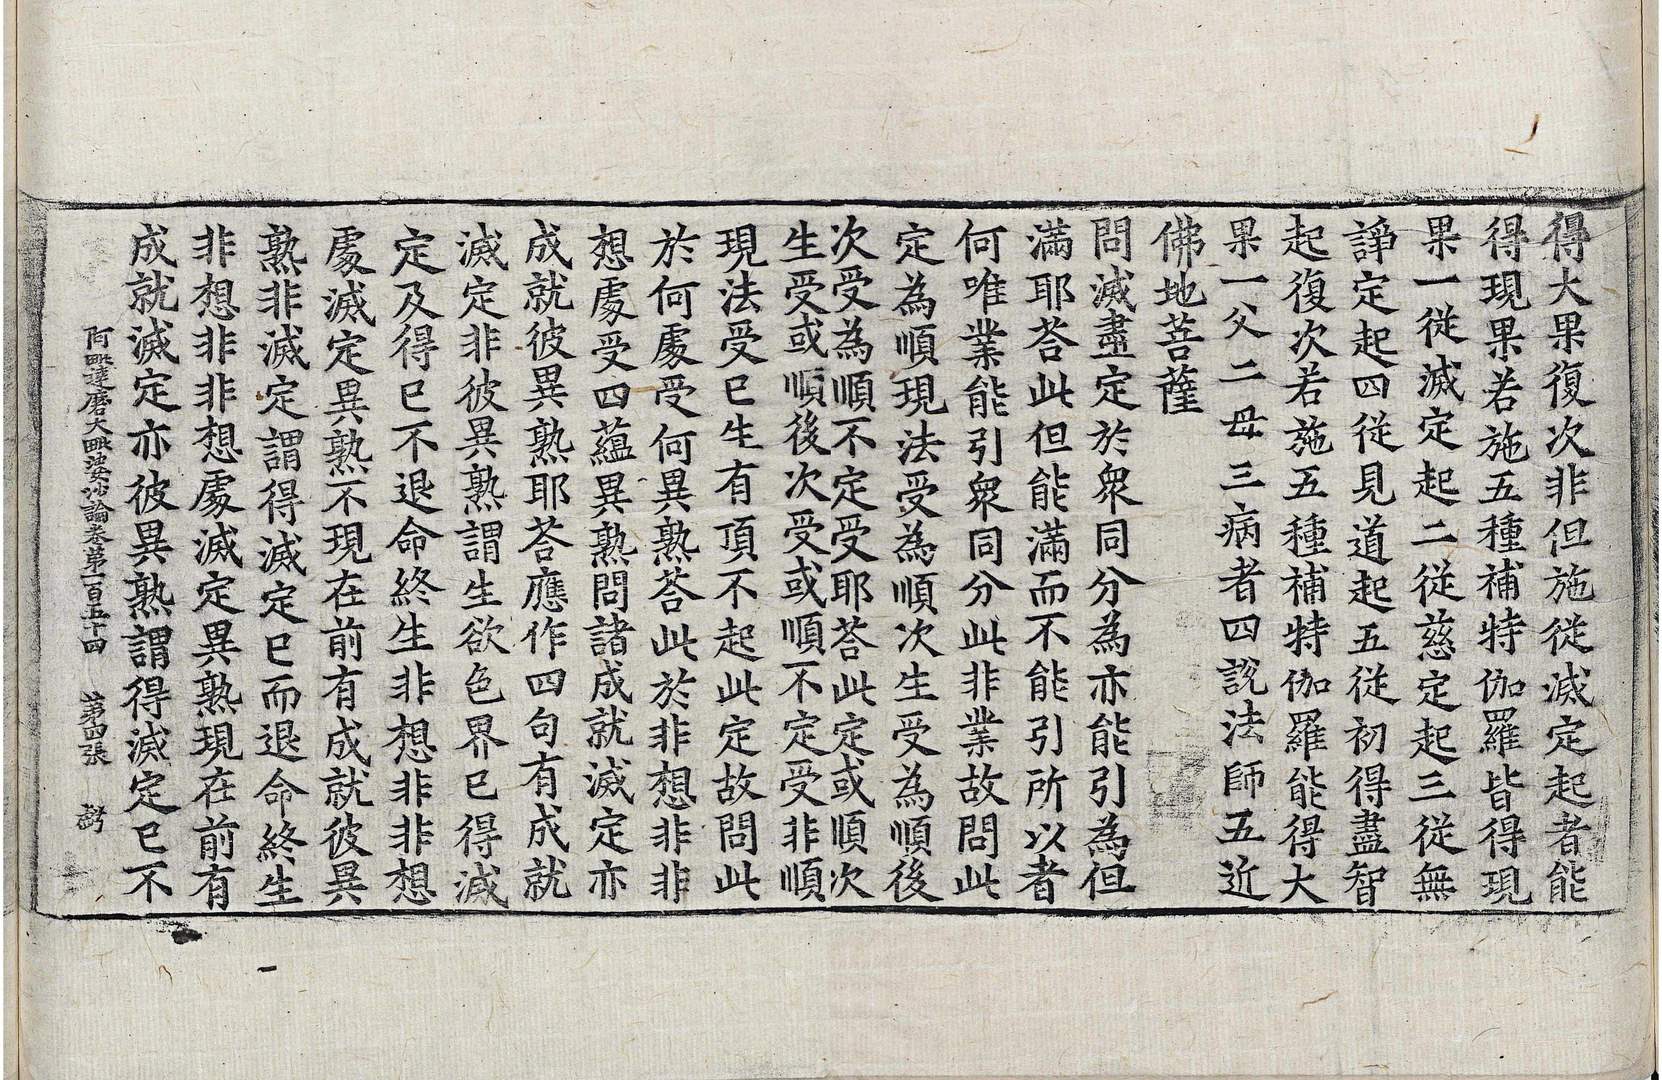 得大果復次非但施從滅定起者能
得現果若施五種補特伽羅皆得現
果一從滅定起二從慈定起三從無
諍定起四從見道起五從初得盡智
起復次若施五種補特伽羅能得大
果一父二母三病者四說法師五近
佛地菩薩
問滅盡定於衆同分為亦能引為但
滿耶荅此但能滿而不能引所以者
何唯業能引衆同分此非業故問此
定為順現法受為順次生受為順後
次受為順不定受耶荅此定或順次
生受或順後次受或順不定受非順
現法受已生有頂不起此定故問此
於何處受何異熟荅此於非想非非
想處受四蘊異熟問諸成就滅定亦
成就彼異熟耶荅應作四句有成就
滅定非彼異熟謂生欲色界已得滅
定及得已不退命終生非想非非想
處滅定異熟不現在前有成就彼異
熟非滅定謂得滅定已而退命終生
非想非非想處滅定異熟現在前有
成就滅定亦彼異熟謂得滅定已不
阿毗達磨大毗婆沙論卷第一百五十四 第四張